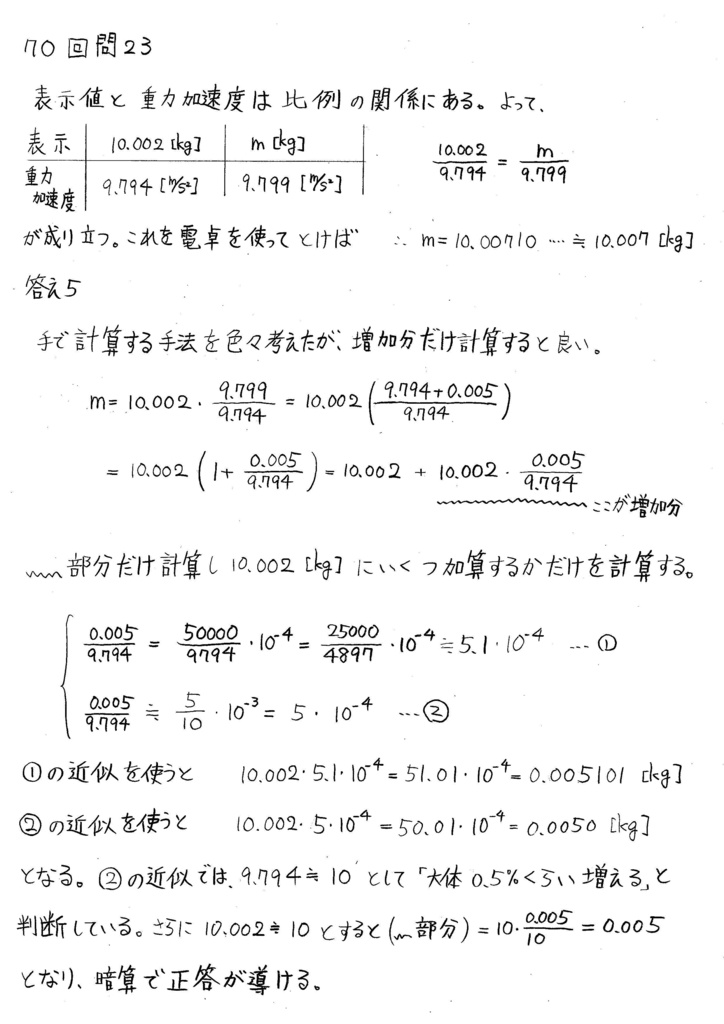 70回問23
表示値と重力加速度は比例の関係にある。よって、
表示 10.002[kg] m[kg]
重力加速度 9.794[m/s²] 9.799[m/s²]
10.002/9.794 = m/9.799
が成り立つ。これを電卓を使ってとけば ∴ m=10.00710… ≒ 10.007[kg]
答え5
手で計算する手法を色々考えたが、増加分だけ計算すると良い。
m= 10.002・9.799/9.794 = 10.002(9.794+0.005/9.794)
= 10.002(1+0.005/9.794) = 10.002 + 10.002・0.005/9.794
ここが増加分
﹏部分だけ計算し10.002[kg]にいくつ加算するかだけを計算する。
0.005/9.794 = 50000/9794・10⁻⁴ = 25000/4897・10⁻⁴ ≒ 5.1・10⁻⁴ …①
0.005/9.794 ≒ 5/10・10⁻³ = 5・10⁻⁴ …②
①の近似を使うと 10.002・5.1・10⁻⁴ = 51.01・10⁻⁴ = 0.005101 [kg]
②の近似を使うと 10.002・5・10⁻⁴ = 50.01・10⁻⁴ = 0.0050 [kg]
となる。②の近似では、9.794≒10として「大体0.5%くらい増える」と
判断している。さらに10.002≒10とすると(﹏部分) = 10・0.005/10 = 0.005
となり、暗算で正答が導ける。